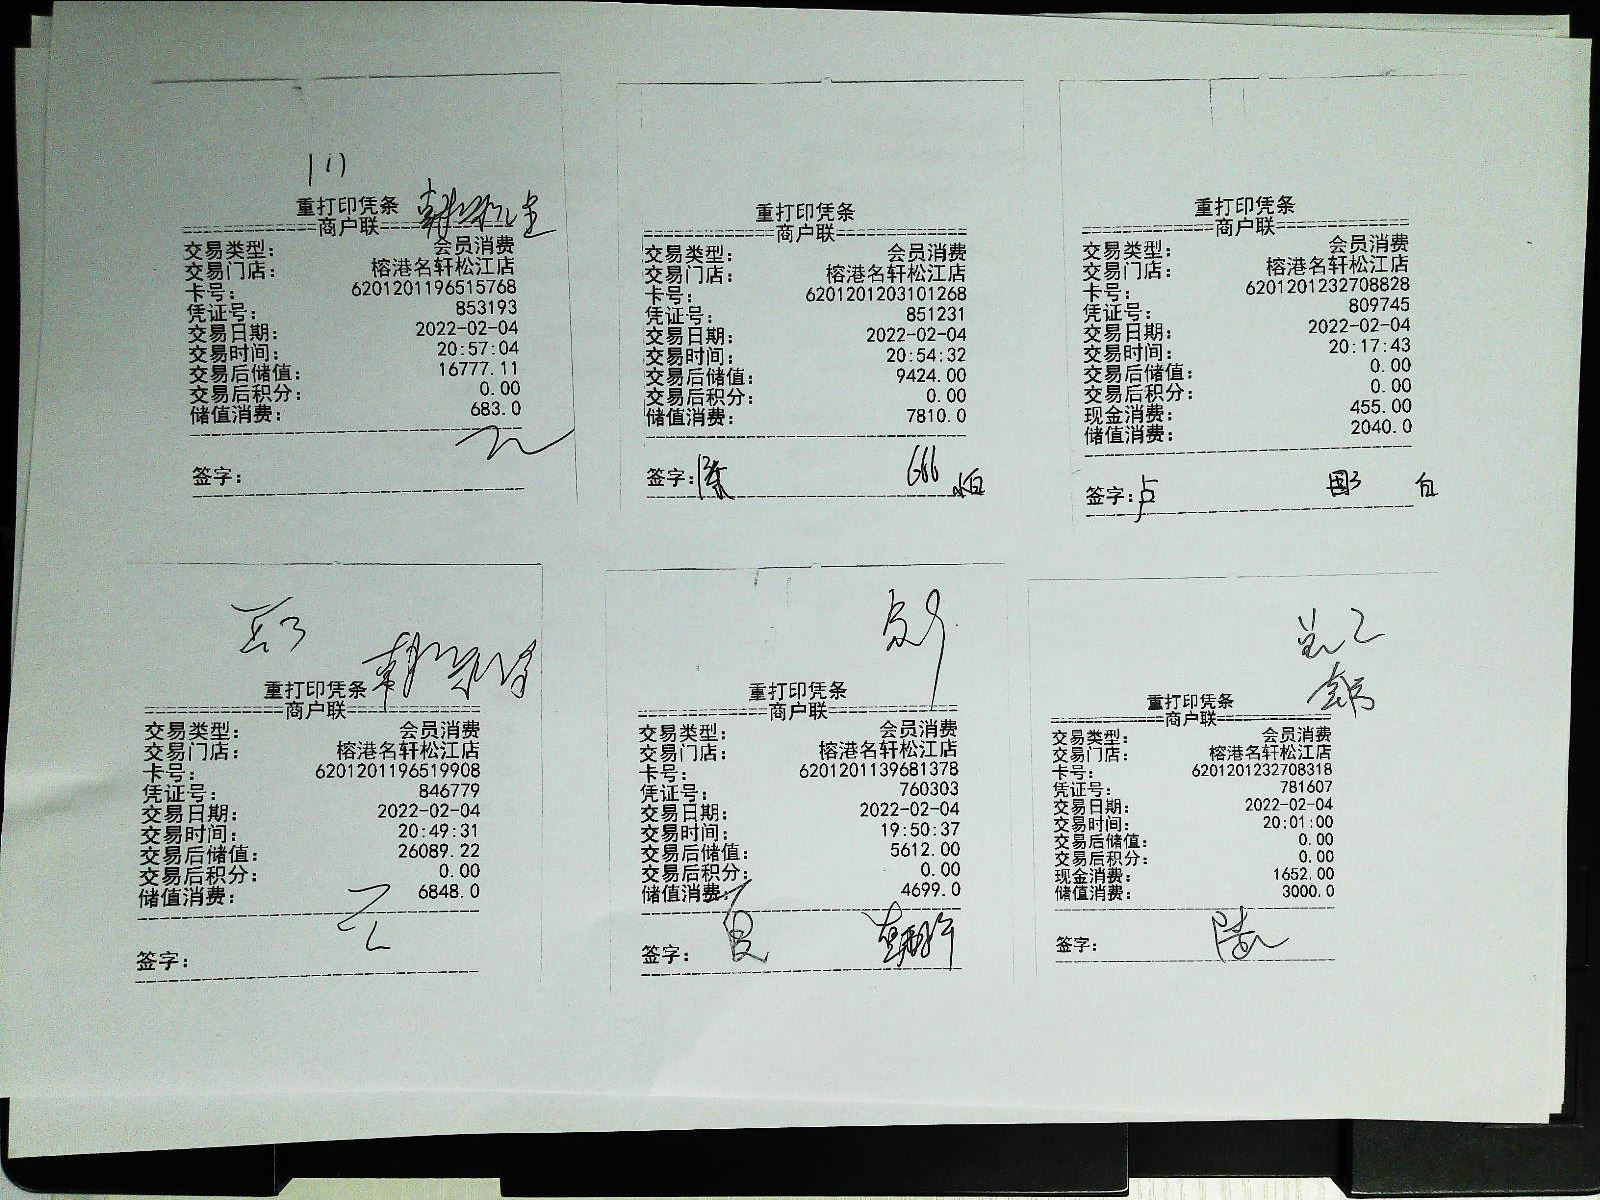 重打印凭条
商户联
交易类型: 会员消费
交易门店: 榕港名轩松江店
卡号: 6201201196515768
凭证号: 853193
交易日期: 2022-02-04
交易时间: 20:57:04
交易后储值: 16777.11
交易后积分: 0.00
储值消费: 683.0
签字:
重打印凭条
商户联
交易类型: 会员消费
交易门店: 榕港名轩松江店
卡号: 6201201203101268
凭证号: 851231
交易日期: 2022-02-04
交易时间: 20:54:32
交易后储值: 9424.00
交易后积分: 0.00
储值消费: 7810.0
签字: 陈 666
重打印凭条
商户联
交易类型: 会员消费
交易门店: 榕港名轩松江店
卡号: 6201201232708828
凭证号: 809745
交易日期: 2022-02-04
交易时间: 20:17:43
交易后储值: 0.00
交易后积分: 0.00
现金消费: 455.00
储值消费: 2040.0
签字: 卢
重打印凭条
商户联
交易类型: 会员消费
交易门店: 榕港名轩松江店
卡号: 6201201196519908
凭证号: 846779
交易日期: 2022-02-04
交易时间: 20:49:31
交易后储值: 26089.22
交易后积分: 0.00
储值消费: 6848.0
签字:
重打印凭条
商户联
交易类型: 会员消费
交易门店: 榕港名轩松江店
卡号: 6201201139681378
凭证号: 760303
交易日期: 2022-02-04
交易时间: 19:50:37
交易后储值: 5612.00
交易后积分: 0.00
储值消费: 4699.0
签字:
重打印凭条
商户联
交易类型: 会员消费
交易门店: 榕港名轩松江店
卡号: 6201201232708318
凭证号: 781607
交易日期: 2022-02-04
交易时间: 20:01:00
交易后储值: 0.00
交易后积分: 0.00
现金消费: 1652.00
储值消费: 3000.0
签字: